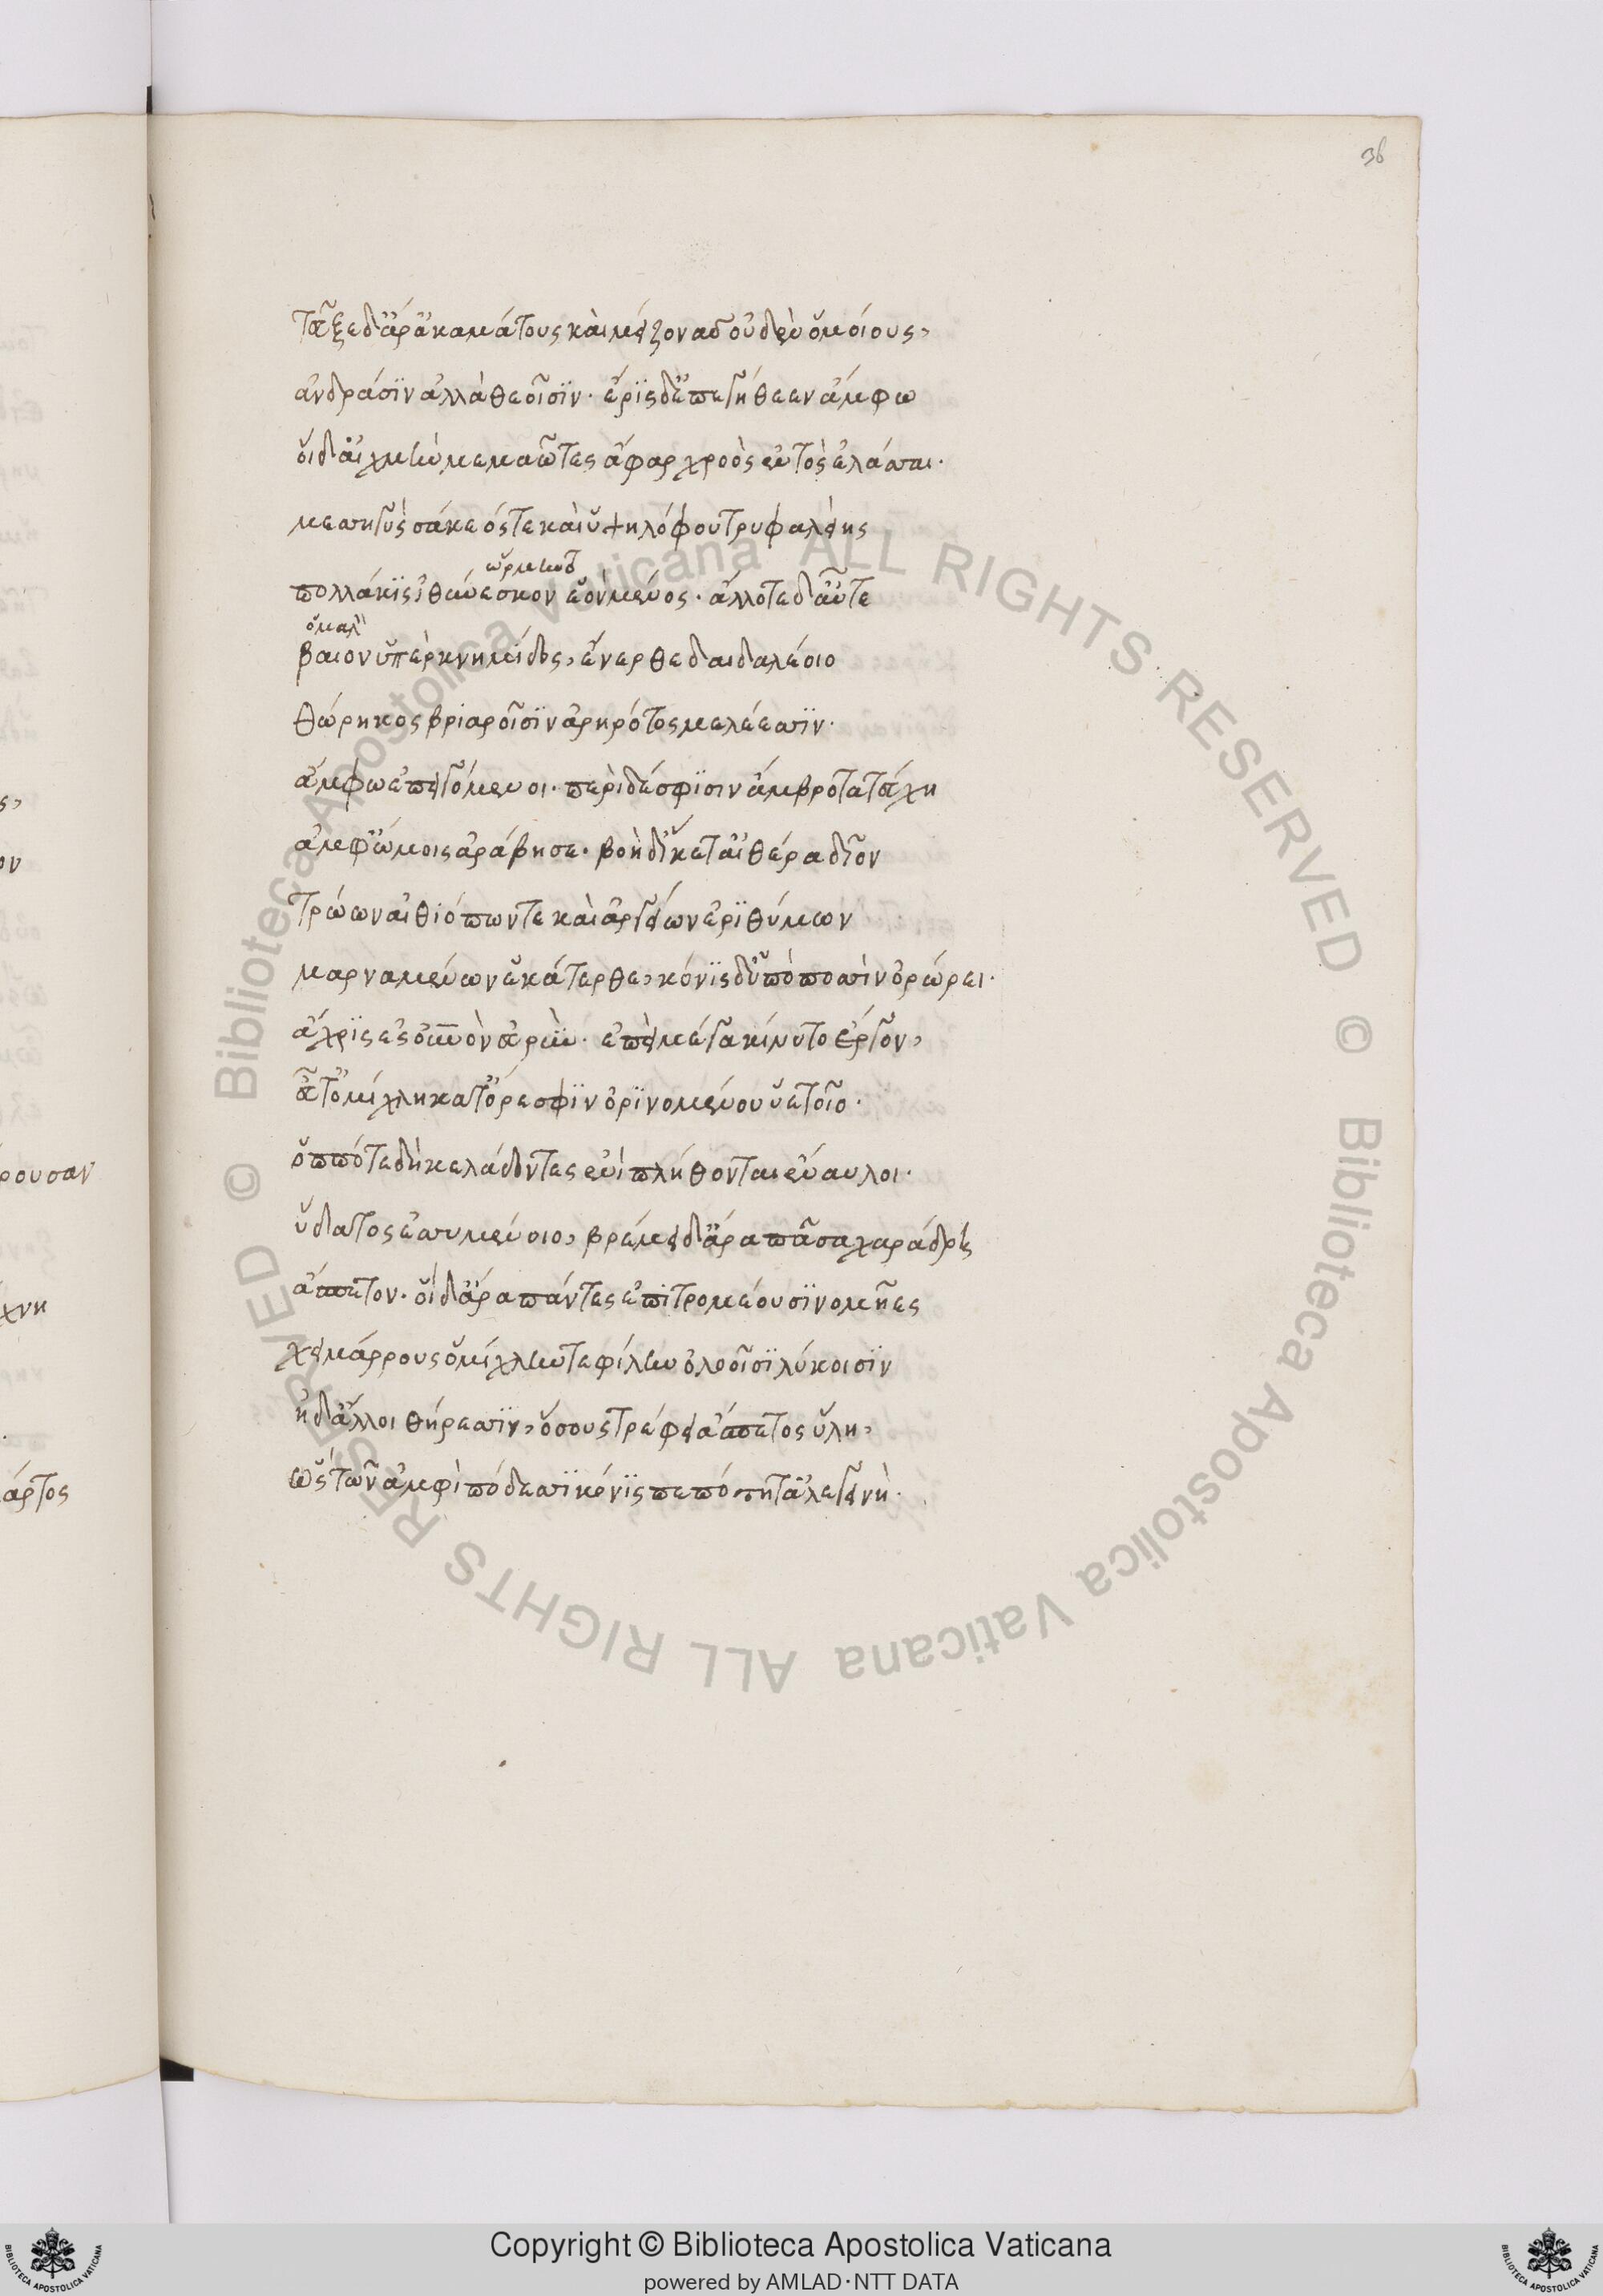 36
τεῦξε δ' ἄρ' ἀκαμάτους καὶ μείζονας οὐδὲν ὁμοίους,
ἀνδράσϊν ἀλλὰ θεοῖσϊν· ἔρϊς δ' ἐπεγήθεεν ἄμφω
οἱ δ' αἰχμὴν μεμαῶτες ἄφαρ χροὸς ἐντὸς ἐλάσσαι·
μεσσηγὺς σάκεός τε καὶ ὑψηλόφου τρυφαλείης
ὥρμην
πολλάκϊς ἰθύνεσκον ἑὸν μένος· ἄλλοτε δ' αὖτε
βαιὸν ὑπὲρ κνημίδος, ἔνερθε δαιδαλέοιο
θώρηκος βριαροῖσϊν ἀρηρότος μελέεσσϊν·
ἄμφω ἐπειγόμενοι· περὶ δέ σφϊσιν ἄμβροτα τεύχη
ἀμφ' ὤμοις ἀράβησε· βοὴ δ' ἵκετ' αἰθέρα δῖον
τρώων αἰθιόπων τε καὶ ἀργείων ἐρϊθύμων
μαρναμένων ἑκάτερθε, κόνϊς δ' ὑπὸ ποσσὶν ὀρώρει·
ἄχρϊς ἐς οὐνὸν εὐρὺν· ἐπεὶ μέγα κίνυτο ἔργον,
εὖτ' ὀμίχλη κατ' ὄρεσφϊν ὀρϊνομένου ὑετοῖο·
ὁππότε δὴ κελάδοντες ἐνιπλήθονται ἔναυλοι·
ὕδατος ἐσσυμένοιο, βρέμει δ' ἄρα πᾶσα χαράδρη
ἄσπετον· οἱ δ' ἄρα πάντες ἐπιτρομέουσϊ νομῆες
χειμάρρους ὀμίχλην τε φίλην ὀλοοῖσϊ λύκοισϊν
ἠδ' ἄλλοι θήρεσσϊν, ὅσους τρέφει ἄσπετος ὕλη,
ὣς τῶν ἀμφὶ πόδεσσϊ κόνϊς πεπότητ' ἀλεγεινὴ·
Copyright © Biblioteca Apostolica Vaticana
powered by AMLAD·NTT DATA